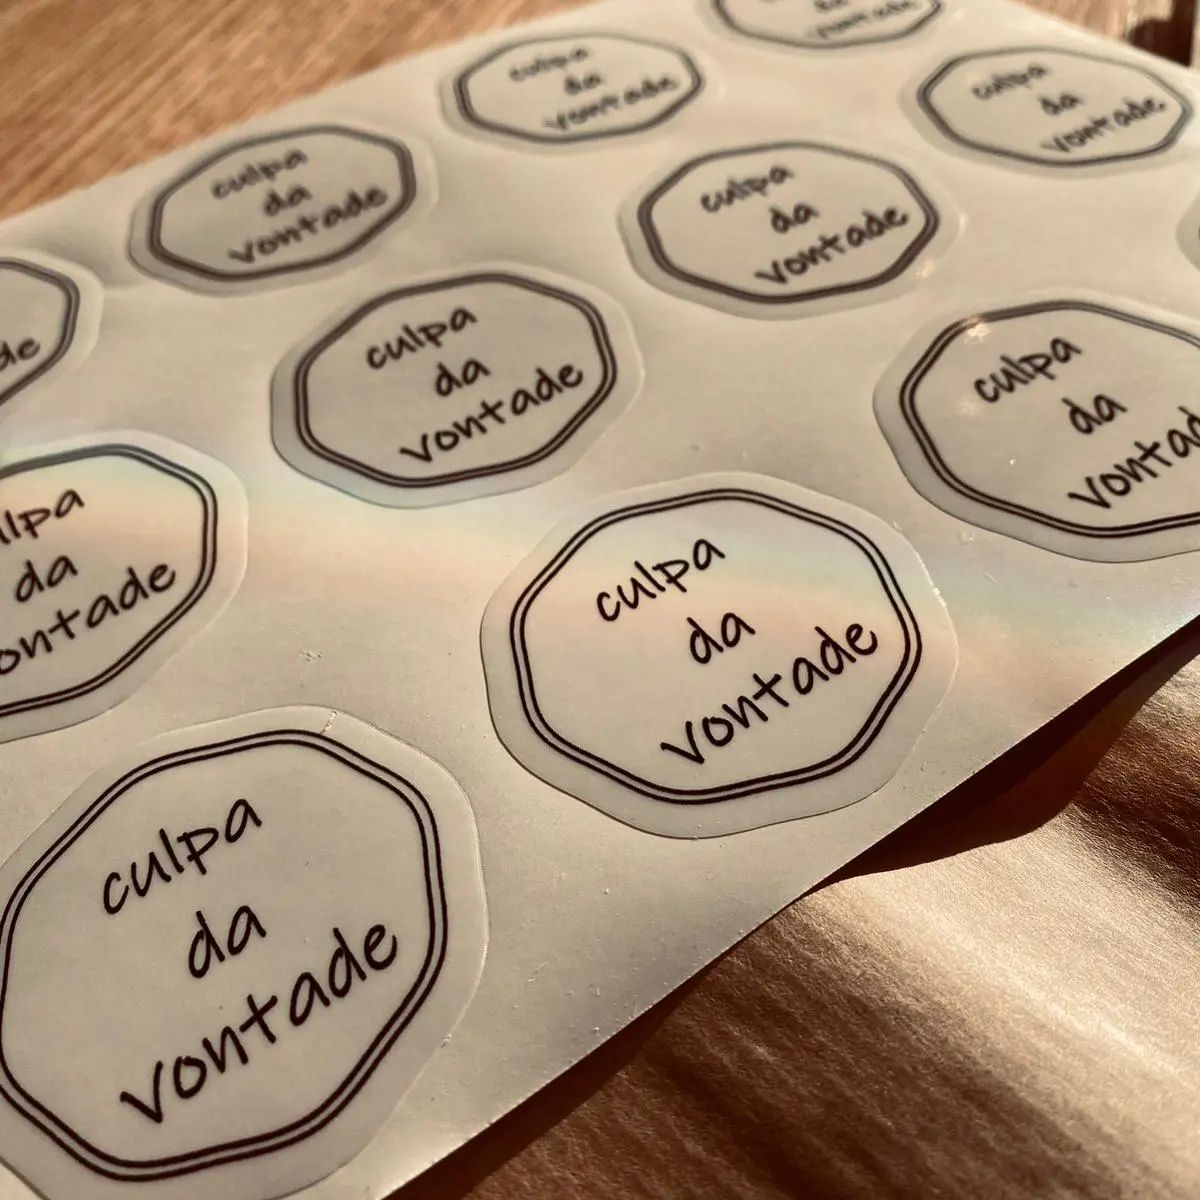 culpa
da
vontade
culpa
da
vontade
culpa
da
vontade
culpa
da
vontade
culpa
da
vontade
de
culpa
da
vontade
culpa
da
culpa
da
vontade
culpa
da
vontade